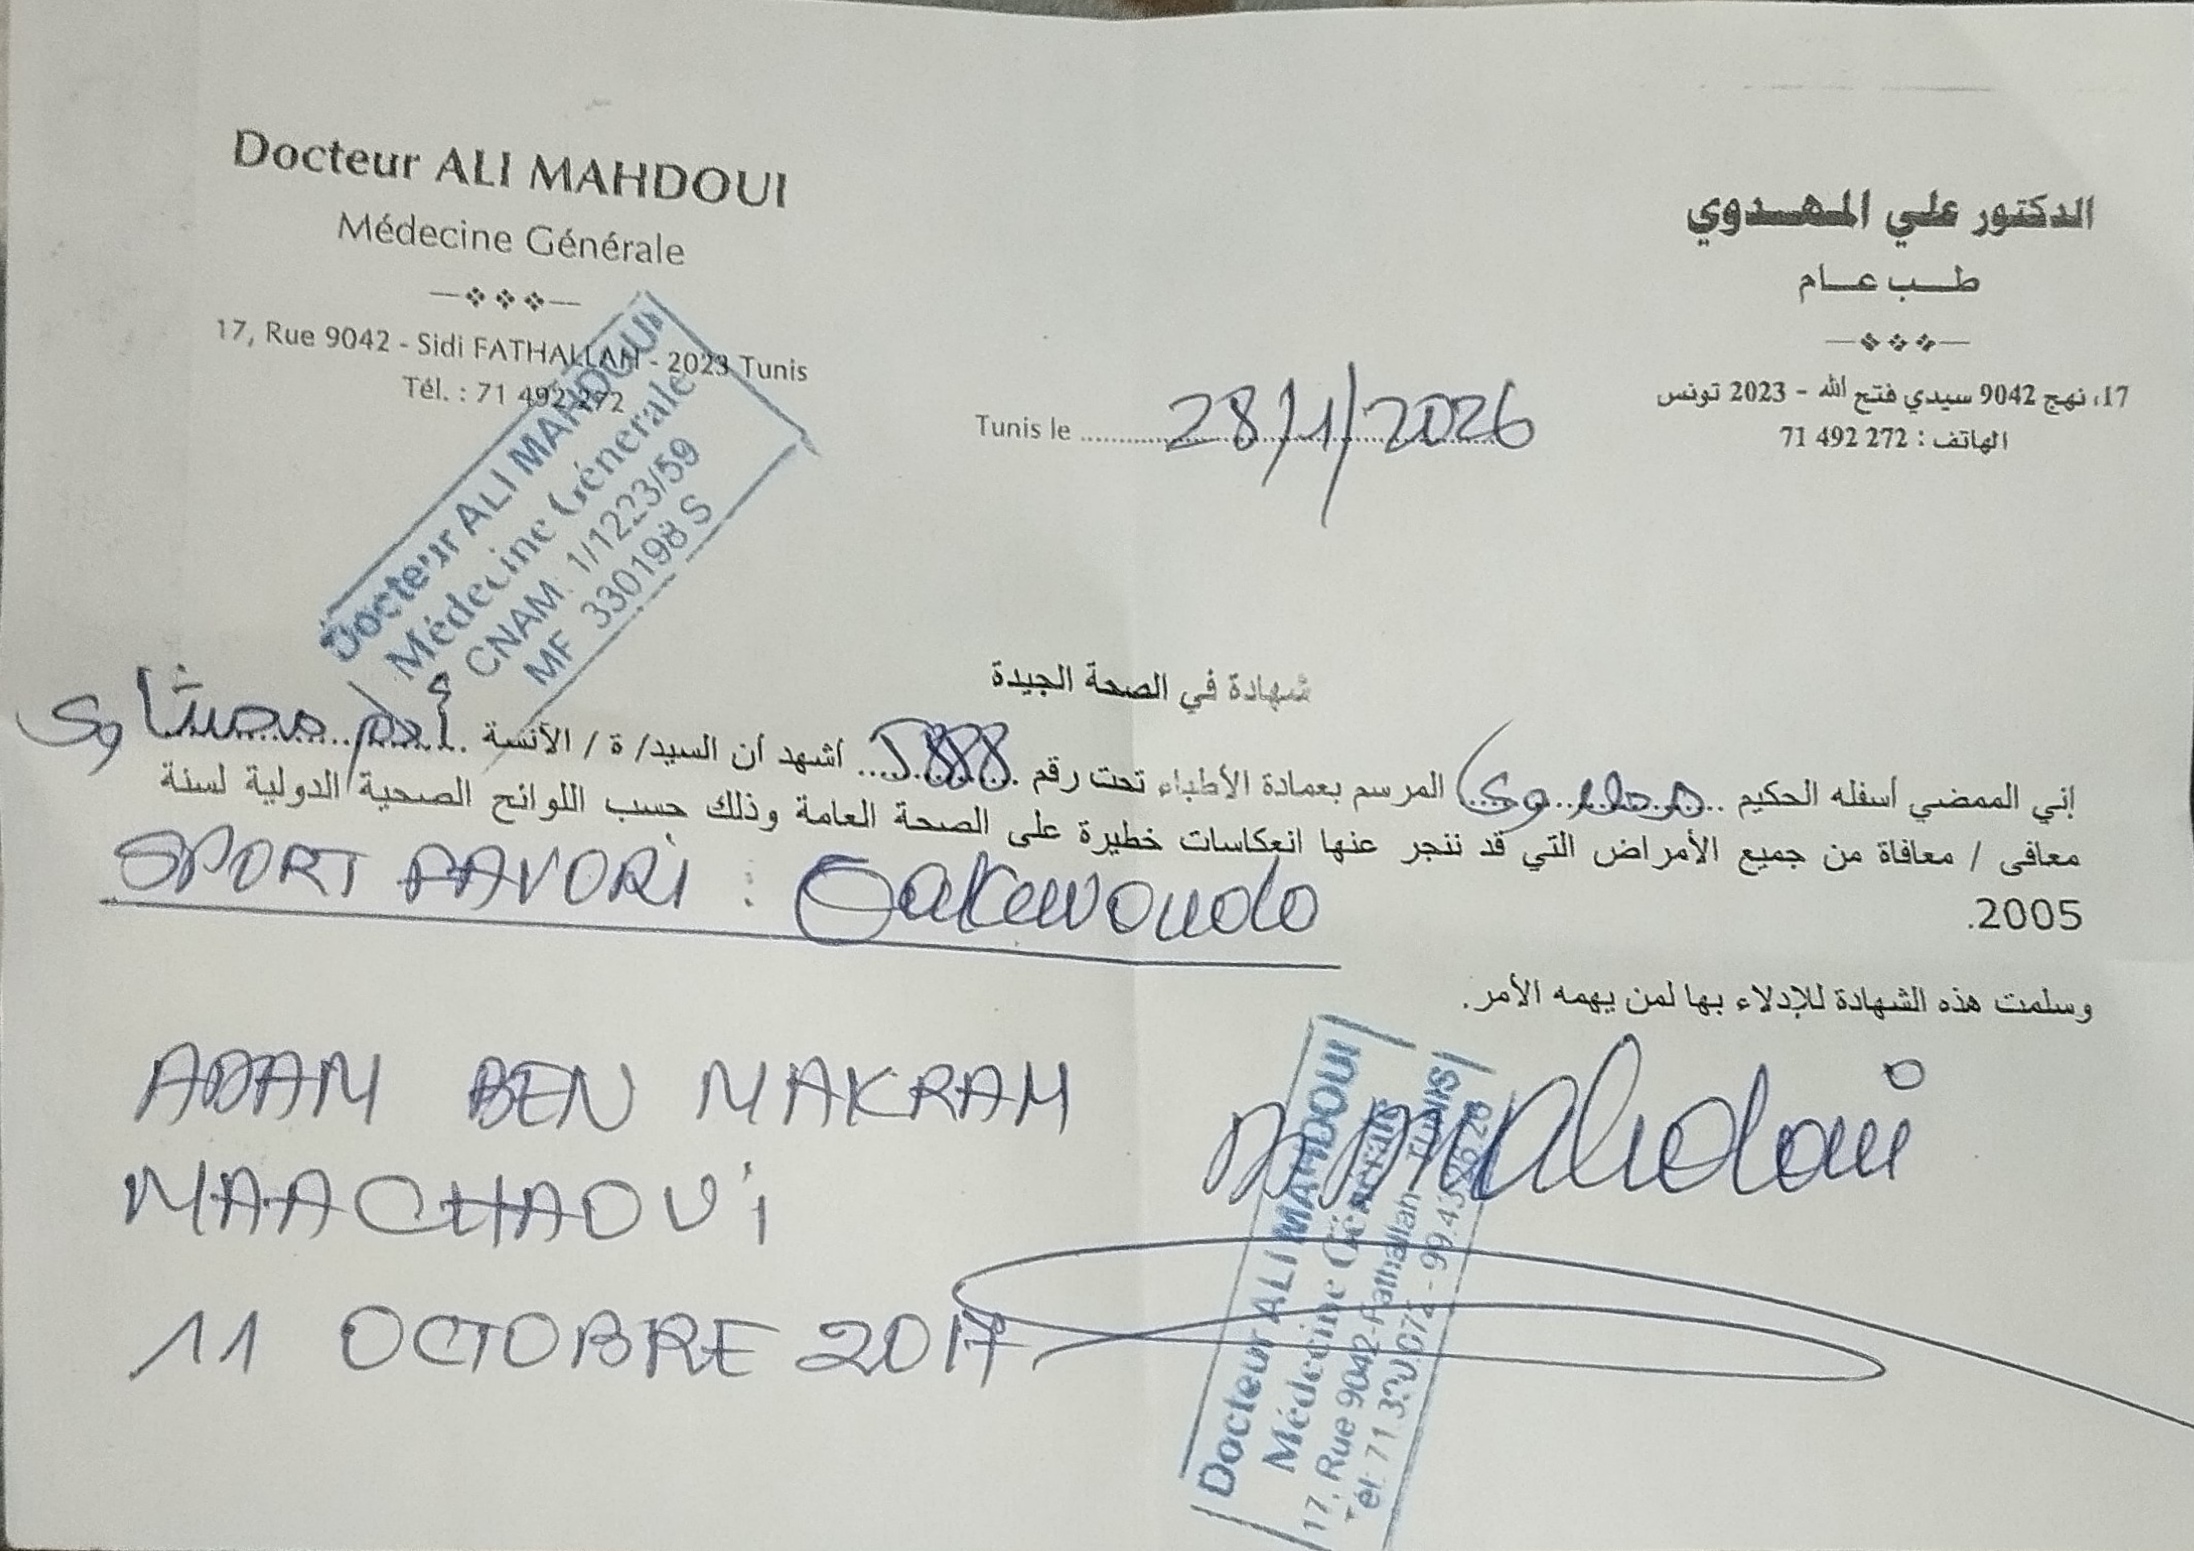 Docteur ALI MAHDOUI
Médecine Générale
17, Rue 9042 - Sidi FATHALLAH - 2023 Tunis
Tél. : 71 492 272
الدكتور علي المهدوي
طب عام
17، نهج 9042 سيدي فتح الله - 2023 تونس
الهاتف : 272 492 71
Tunis le 28/1/2026
Docteur ALI MAHDOUI
Médecine Générale
CNAM: 1/1223/59
MF 330198 S
شهادة في الصحة الجيدة
إني الممضي أسفله الحكيم مهدوي المرسم بعمادة الأطباء تحت رقم أشهد أن السيد/ ة / الأنسة أدم معشاوي
معافى / معافاة من جميع الأمراض التي قد ننجر عنها انعكاسات خطيرة على الصحة العامة وذلك حسب اللوائح الصحية الدولية لسنة
2005.
SPORT FAVORI :
وسلمت هذه الشهادة للإدلاء بها لمن يهمه الأمر.
ADAM BEN MAKRAM
MAACHAOUi
11 OCTOBRE 2017
Mahdoui
Docteur ALI MAHDOUI
Médecine Générale
17, Rue 9042-Fathallah TUNIS
Tél: 71